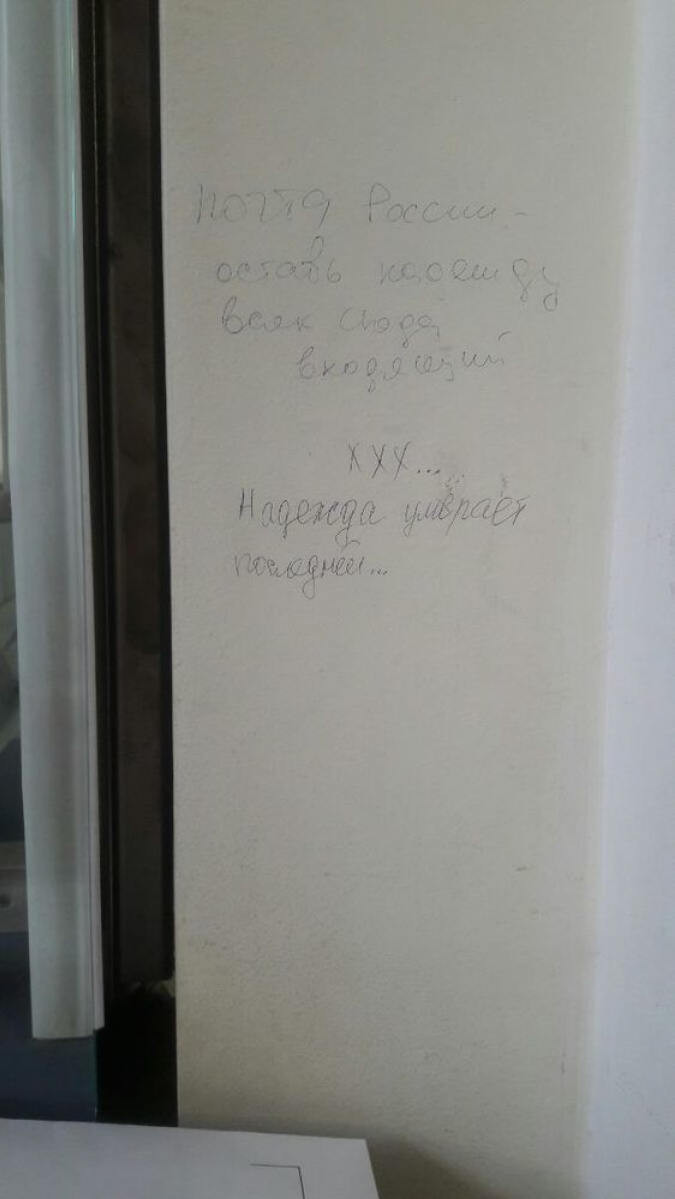 почта России -
оставь надежду
всяк сюда
входящий
XXX...
Надежда умирает
последней...